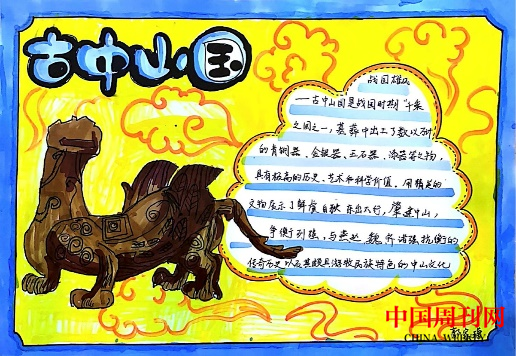 古中山国
战国雄风
一古中山国是战国时期
之国之一，墓葬中出土了数以
的青铜器、金银器、玉石器、漆器等文物，
具有极高的历史、艺术和科学价值，用精美的
文物展示了鲜虞自狄东出太行，肇建中山，
争衡列强，与燕赵魏齐诸强抗衡的
传奇历史以及其颇具游牧民族特色的中山文化
中国周刊网
CHINA WEEKLY